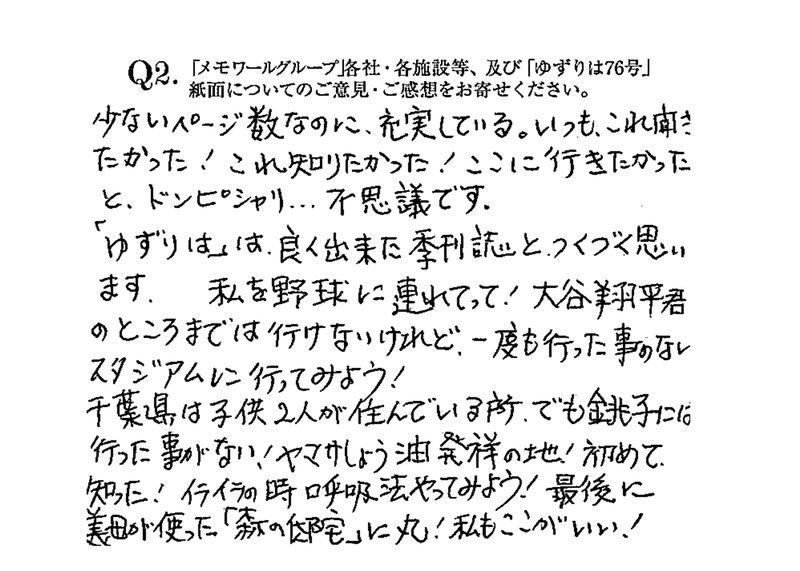 Q2.「メモワールグループ」各社・各施設等、及び「ゆずりは76号」
紙面についてのご意見・ご感想をお寄せください。
少ないページ数なのに、充実している。いつも、これ聞き
たかった！これ知りたかった！ここに行きたかった
と、ドンピシャリ…不思議です。
「ゆずりは」は、良く出来た季刊誌と、つくづく思い
ます。 私を野球に連れてって！大谷翔平君
のところまでは行けないけれど、一度も行った事のない
スタジアムに行ってみよう！
千葉県は子供2人が住んでいる所、でも銚子には
行った事がない！ヤマサしょう油発祥の地！初めて
知った！イライラの時呼吸法やってみよう！最後に
義母が使った「森の邸宅」に丸！私もここがいい！